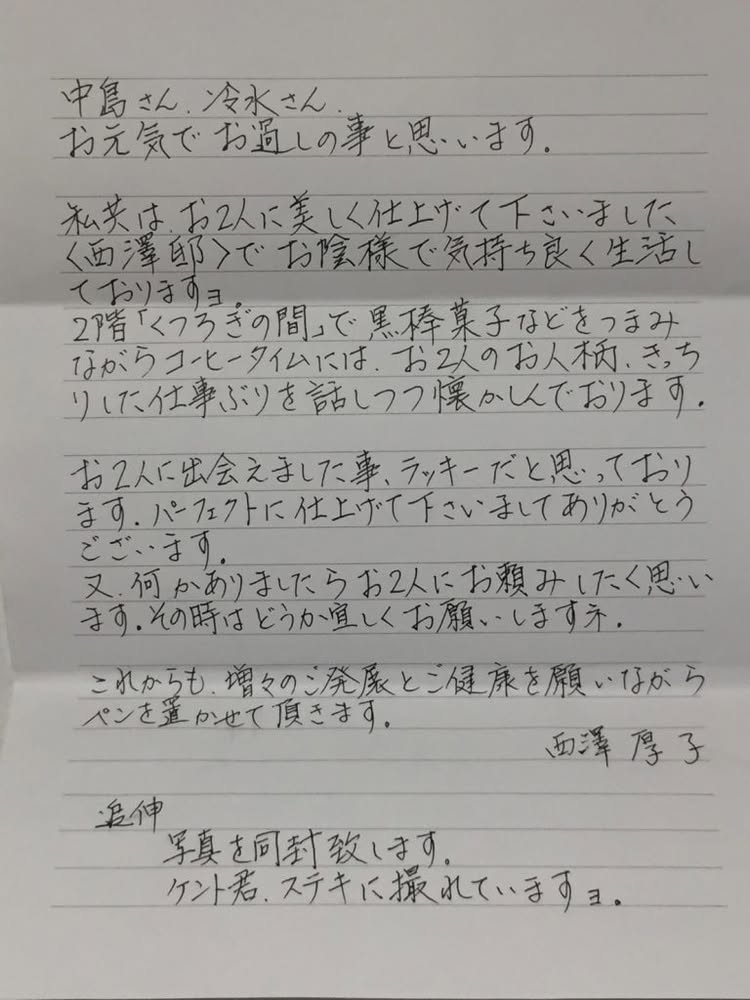 中島さん、冷水さん、
お元気でお過しの事と思います。
私共は、お2人に美しく仕上げて下さいました
〈西澤邸〉でお陰様で気持ち良く生活し
ておりますョ。
2階「くつろぎの間」で黒棒菓子などをつまみ
ながらコーヒータイムには、お2人のお人柄、きっち
りした仕事ぶりを話しつつ懐かしんでおります。
お2人に出会えました事、ラッキーだと思っており
ます。パーフェクトに仕上げて下さいましてありがとう
ございます。
又、何かありましたらお2人にお頼みしたく思い
ます。その時はどうか宜しくお願いしますネ。
これからも、増々のご発展とご健康を願いながら
ペンを置かせて頂きます。
西澤 厚子
追伸
写真を同封致します。
ケント君、ステキに撮れていますョ。